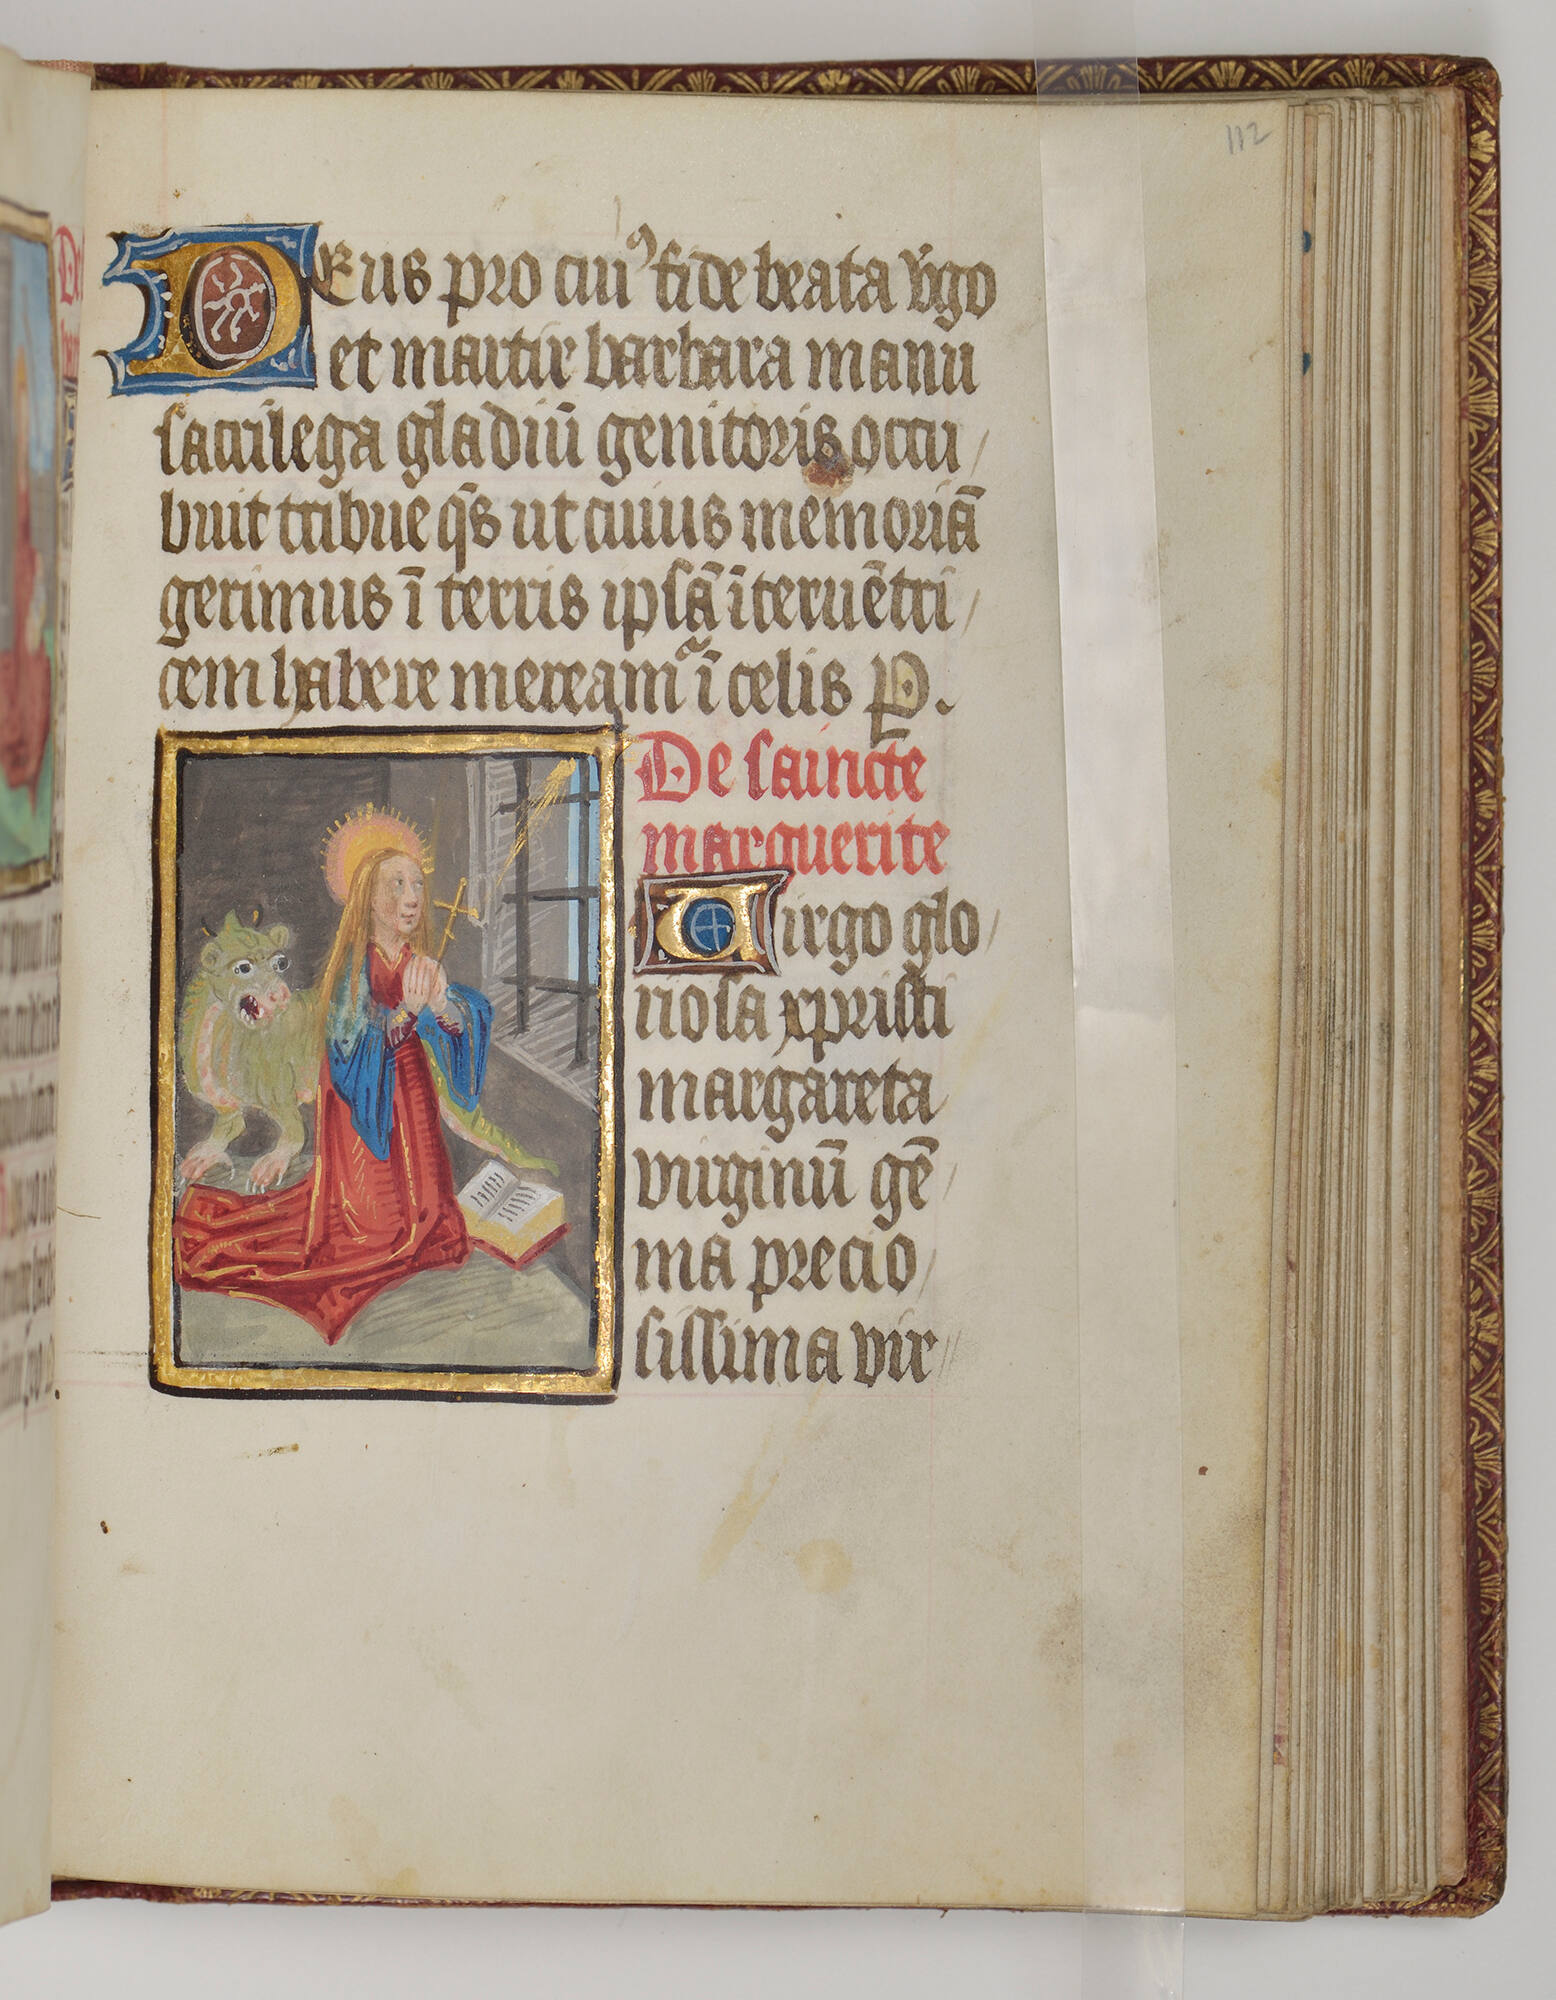 112
Deus pro cuiꝰ fide beata v̄go
et martir barbara manu
sacrilega gladiū genitoris occu
buit tribue q̄s ut cuius memoriā
gerimus ī terris ipsā īteruētri
cem habere mereamᵃ ī celis P.
De saincte
marguerite
Virgo glo
riosa xpristi
margareta
virginū gē
ma precio
sissima vir